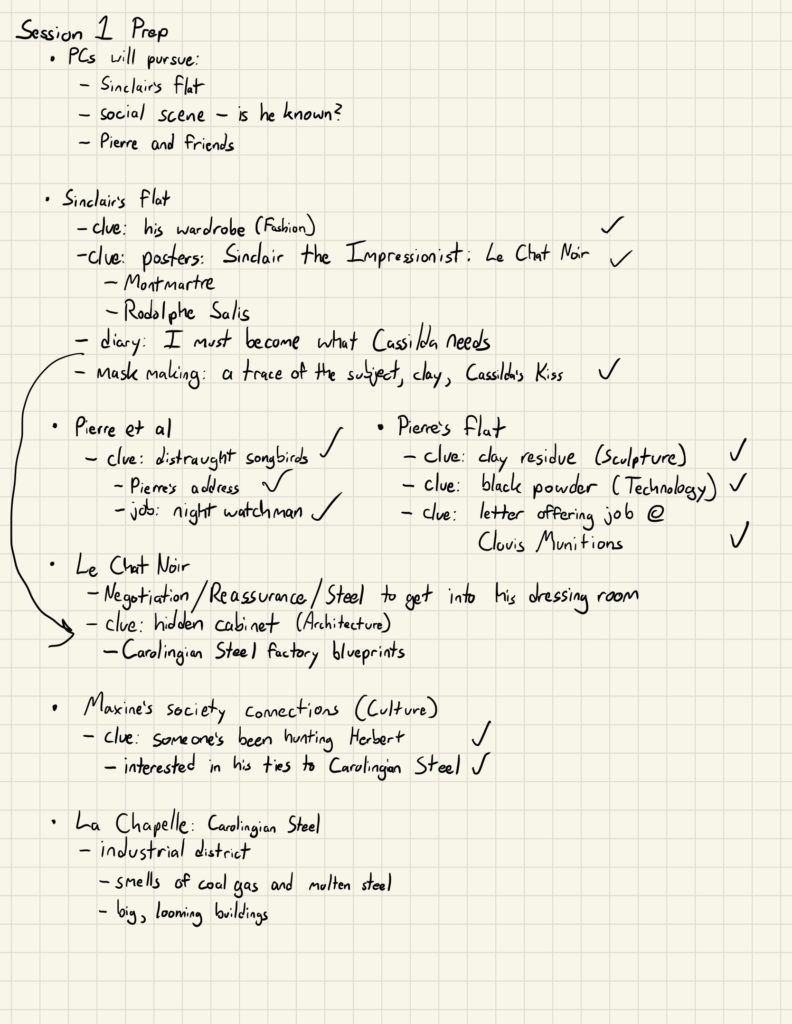 Session 1 Prep
• PCs will pursue:
– Sinclair's flat
– social scene – is he known?
– Pierre and friends
• Sinclair's flat
– clue: his wardrobe (Fashion) ✓
– clue: posters: Sinclair the Impressionist: Le Chat Noir ✓
– Montmartre
– Rodolphe Salis
– diary: I must become what Cassilda needs
– mask making: a trace of the subject, clay, Cassilda's Kiss ✓
• Pierre et al
– clue: distraught songbirds ✓
– Pierre's address ✓
– job: night watchman ✓
• Pierre's flat
– clue: clay residue (Sculpture) ✓
– clue: black powder (Technology) ✓
– clue: letter offering job @
Clovis Munitions ✓
• Le Chat Noir
– Negotiation/Reassurance/Steel to get into his dressing room
– clue: hidden cabinet (Architecture)
– Carolingian Steel factory blueprints
• Maxine's society connections (Culture)
– clue: someone's been hunting Herbert ✓
– interested in his ties to Carolingian Steel ✓
• La Chapelle: Carolingian Steel
– industrial district
– smells of coal gas and molten steel
– big, looming buildings